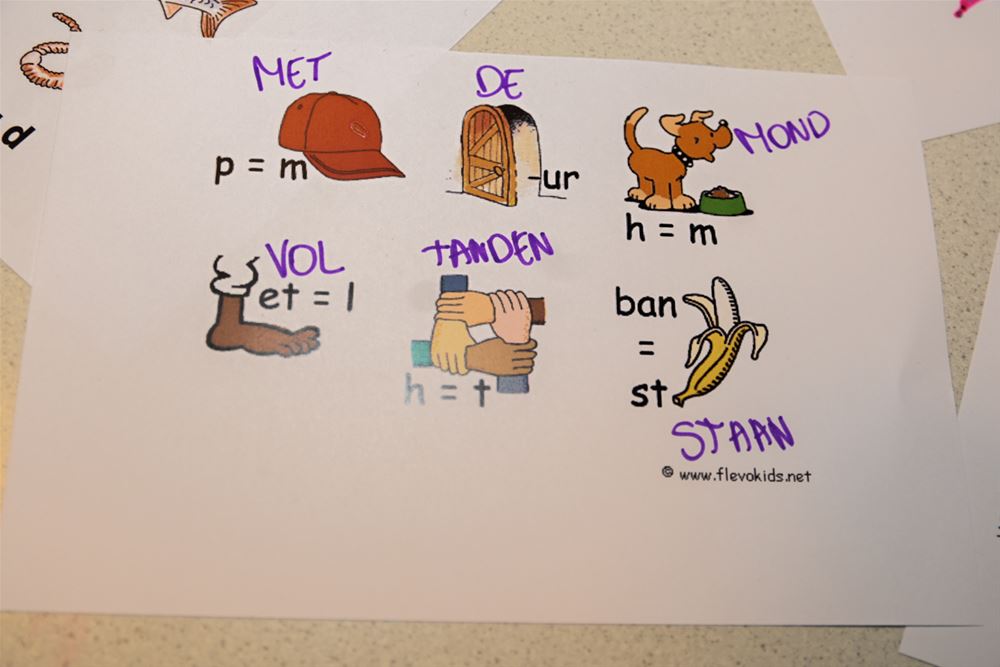 MET
DE
MOND
p = m
-ur
h = m
VOL
TANDEN
et = l
ban
=
st
h = t
STAAN
© www.flevokids.net
d